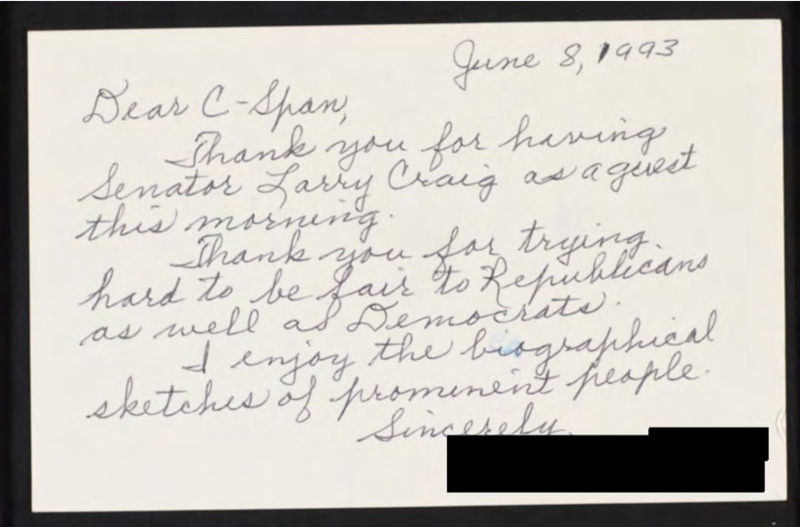 June 8, 1993
Dear C-Span,
Thank you for having
Senator Larry Craig as a guest
this morning.
Thank you for trying
hard to be fair to Republicans
as well as Democrats.
I enjoy the biographical
sketches of prominent people.
Sincerely,